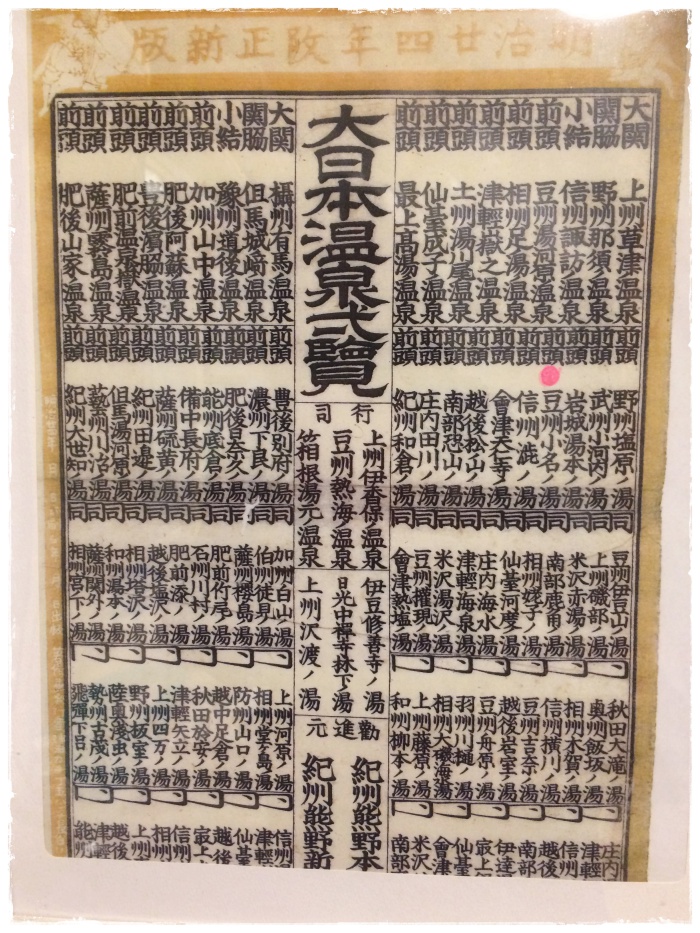 明治廿四年改正新版
大日本温泉一覧
大関 上州草津温泉
関脇 野州那須ノ温泉
小結 信州諏訪ノ温泉
前頭 豆州湯河原温泉
前頭 相州足ノ湯温泉
前頭 津軽嶽之温泉
前頭 土州湯川尾温泉
前頭 仙臺成子ノ温泉
前頭 最上高湯温泉
前頭 野州塩原ノ湯
前頭 武州小河内ノ湯
前頭 岩城湯本ノ湯
前頭 豆州小名ノ湯
前頭 信州渋ノ湯
前頭 會津天仁寺ノ湯
前頭 越後松山ノ湯
前頭 南部恐山ノ湯
前頭 庄内田川ノ湯
前頭 紀州和倉ノ湯
同 豆州伊豆山ノ湯
同 上州磯部ノ湯
同 米沢赤湯ノ湯
同 南部鹿角ノ湯
同 相州姥子ノ湯
同 仙臺河度ノ湯
同 庄内海水ノ湯
同 津軽海泉ノ湯
同 米沢湯沢ノ湯
同 豆州権現ノ湯
同 會津熱塩ノ湯
秋田大滝ノ湯
奥州飯坂ノ湯
相州木賀ノ湯
信州横川ノ湯
豆州吉奈ノ湯
越後岩室ノ湯
豆州舟原ノ湯
羽州川樋ノ湯
相州大磯海湯
上州藤原ノ湯
和州柳本ノ湯
庄内
津軽
信州
越後
南部
伊達
最上
仙臺
會津
米沢
南部
行司
上州伊香保ノ温泉
豆州熱海ノ温泉
箱根湯元ノ温泉
伊豆修善寺ノ湯
日光中禅寺林下ノ湯
上州沢渡ノ湯
勧進元
紀州熊野本
紀州熊野新
大関 攝州有馬温泉
関脇 但馬城崎温泉
小結 豫州道後温泉
前頭 加州山中温泉
前頭 肥後阿蘇温泉
前頭 豊後濱脇温泉
前頭 肥前温泉嶽温泉
前頭 薩州霧島温泉
前頭 肥後山家温泉
前頭 豊後別府ノ湯
前頭 濃州下良ノ湯
前頭 肥後日奈久ノ湯
前頭 能州底倉ノ湯
前頭 備中長府ノ湯
前頭 薩州硫黄ノ湯
前頭 紀州田邉ノ湯
前頭 但馬湯河原湯
前頭 藝州川治ノ湯
前頭 紀州大世知ノ湯
同 加州白山ノ湯
同 伯州徒見ノ湯
同 薩州櫻島ノ湯
同 肥前竹弓ノ湯
同 石州川村ノ湯
同 肥前添ノ湯
同 越後塩沢ノ湯
同 相州塔沢ノ湯
同 和州湯本ノ湯
同 薩州関外ノ湯
同 相州宮ノ下ノ湯
上州河原ノ湯
相州堂ヶ島ノ湯
防州山口ノ湯
越中足倉ノ湯
秋田於安ノ湯
津軽矢立ノ湯
上州四万ノ湯
野州坂室ノ湯
陸奥浅虫ノ湯
勢州古茂ノ湯
飛騨下呂ノ湯
信州
津軽
仙臺
越後
最上
信州
相州
上州
越後
津軽
能州